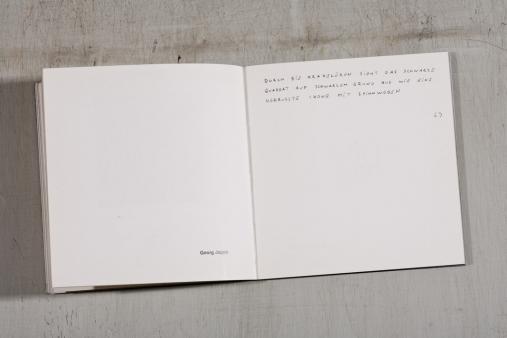 Georg Jappe
DURCH DIE KRAKELÜREN SIEHT DAS SCHWARZE
QUADRAT AUF SCHWARZEM GRUND AUS WIE EINE
VERRUSSTE IKONE MIT SPINNWEBEN